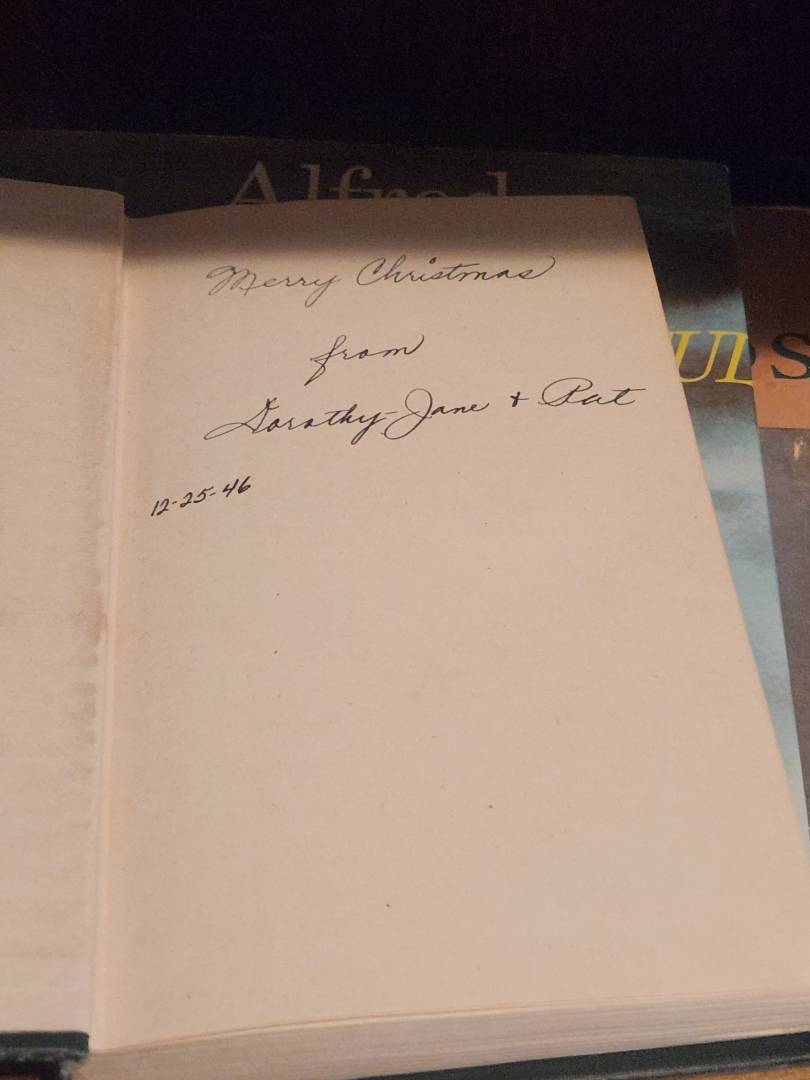 Alfred
Merry Christmas
from
Dorothy-Jane + Pat
12-25-46